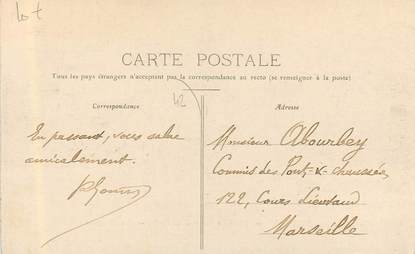 Lot
CARTE POSTALE
Tous les pays étrangers n'acceptent pas la correspondance au recto (se renseigner à la poste)
42
Correspondance
Adresse
En passant, vous salue
amicalement.
Monsieur Abourbey
Commis des Ponts-&-chaussées
122, Cours Lieutaud
Marseille